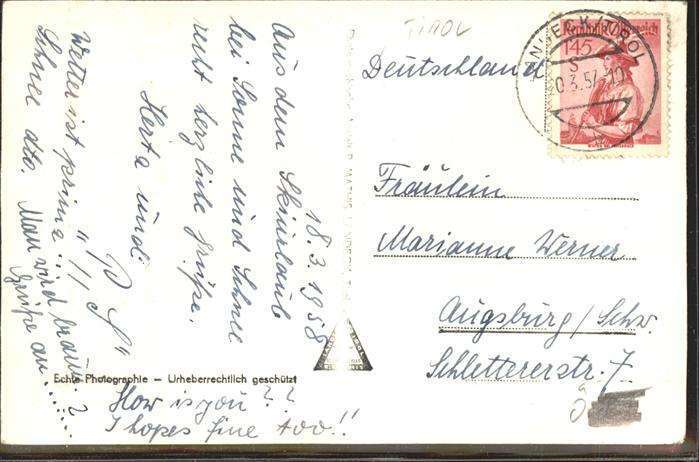 18.3.1958
Aus dem Skiurlaub
bei Sonne und Schnee
recht herzliche Grüße.
Herta und
"P S"
Wetter ist prima...!!
Schnee dto. Man wird braun?
Grüße an.......
How is you??
I hopes fine too!!
Echte Photographie – Urheberrechtlich geschützt
TIROL
LANDECK (TIROL)
1.45
S
Deutschland
Fräulein
Marianne Werner
Augsburg/Schw.
Schlettererstr. 7